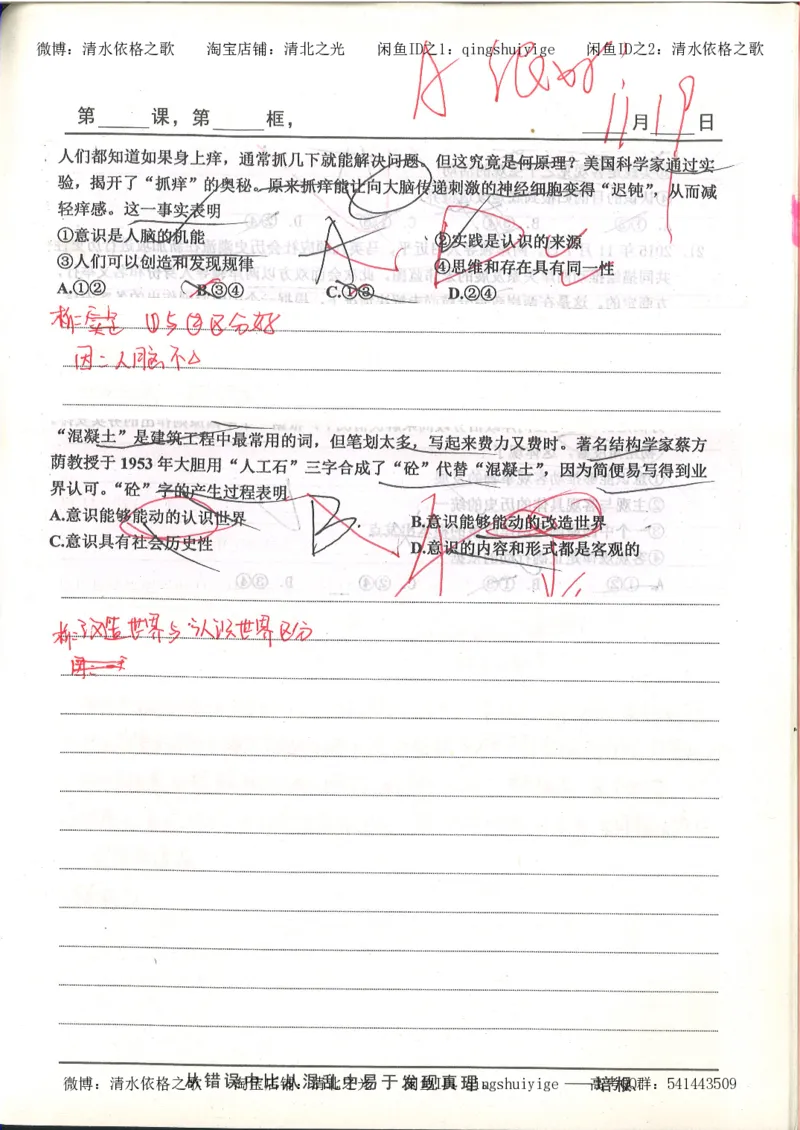 微博：清水依格之歌 淘宝店铺：清北之光 闲鱼ID之1：qingshuiyige 闲鱼ID之2：清水依格之歌
A 很好
第 课，第 框， 11月19日
人们都知道如果身上痒，通常抓几下就能解决问题。但这究竟是何原理？美国科学家通过实
验，揭开了“抓痒”的奥秘。原来抓痒能让向大脑传递刺激的神经细胞变得“迟钝”，从而减
轻痒感。这一事实表明
①意识是人脑的机能 ②实践是认识的来源
③人们可以创造和发现规律 ④思维和存在具有同一性
A.①② B.③④ C.①③ D.②④
①与②区分好
因：人脑不
“混凝土”是建筑工程中最常用的词，但笔划太多，写起来费力又费时。著名结构学家蔡方
荫教授于 1953 年大胆用“人工石”三字合成了“砼”代替“混凝土”，因为简便易写得到业
界认可。“砼”字的产生过程表明
A.意识能够能动的认识世界 B. B.意识能够能动的改造世界
C.意识具有社会历史性 D.意识的内容和形式都是客观的
析：改造世界与认识世界区分
从错误中比从混乱中易于发现真理。 ——培根
微博：清水依格之歌 淘宝店铺：清北之光 qingshuiyige QQ群：541443509